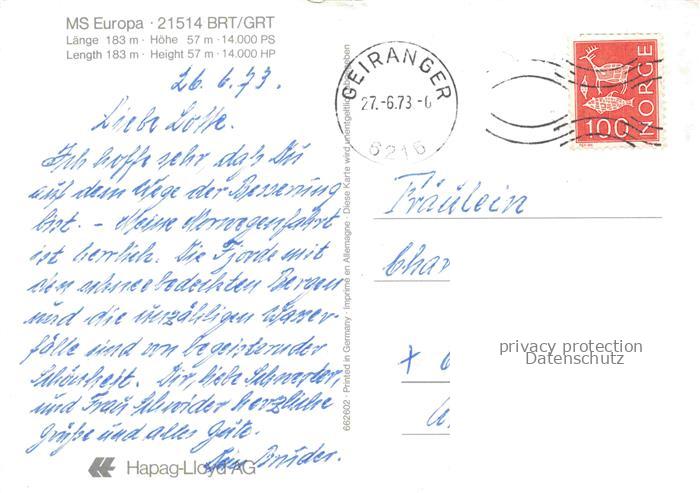 MS Europa · 21514 BRT/GRT
Länge 183 m · Höhe 57 m · 14.000 PS
Length 183 m · Height 57 m · 14.000 HP
26.6.73.
Liebe Lotte.
Ich hoffe sehr, daß Du
auf dem Wege der Besserung
bist. – Meine Norwegenfahrt
ist herrlich. Die Fjorde mit
den schneebedeckten Bergen
und die unzähligen Wasser-
fälle sind von begeisternder
Schönheit. Dir, liebe Schwester,
und Frau herzliche
Grüße und alles Gute.
Dein Bruder.
Hapag-Lloyd AG
662602 · Printed in Germany · Imprimé en Allemagne · Diese Karte wird unentgeltlich abgegeben
GEIRANGER
27.-6.73.-6
6216
NORGE
100
Fräulein
Char
privacy protection
Datenschutz